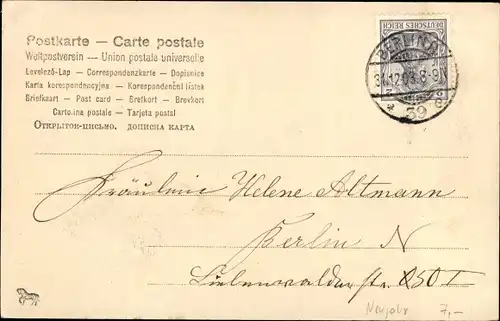 Postkarte — Carte postale
Weltpostverein — Union postale universelle
Levelező-Lap — Correspondenzkarte — Dopisnice
Karta korespondencyjna — Korespondenční lístek
Briefkaart — Post card — Brefkort — Brevkort
Cartolina postale — Tarjeta postal
Открытое-письмо. дописна карта
DEUTSCHES REICH
BERLIN
31.12.03.8-9V.
39
Fräulein Helene Altmann
Berlin N
Liebenwalder str. 50 I
Neujahr 7,-